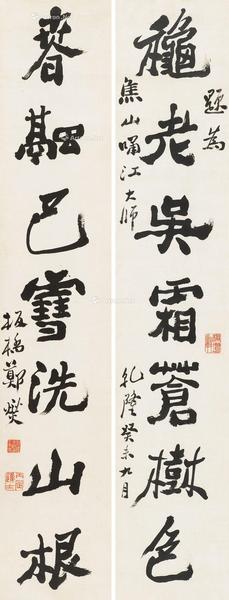 穐老吳霜蒼樹色
題為
焦山嘯江大師
乾隆癸未九月
春融巴雪洗山根
板橋鄭燮